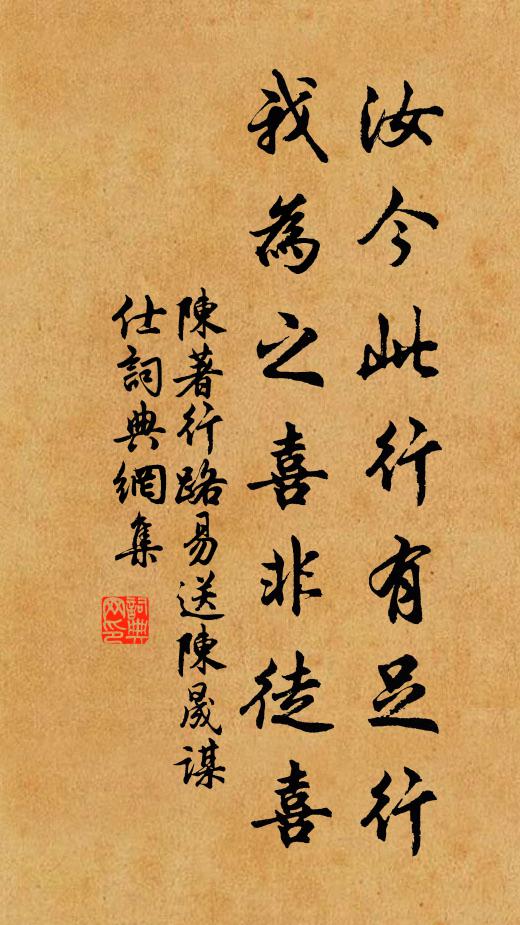 汝今此行有足行
我為之喜非徒喜
陳著行路易送陳晟謀
仕詞典網集
詞典網印